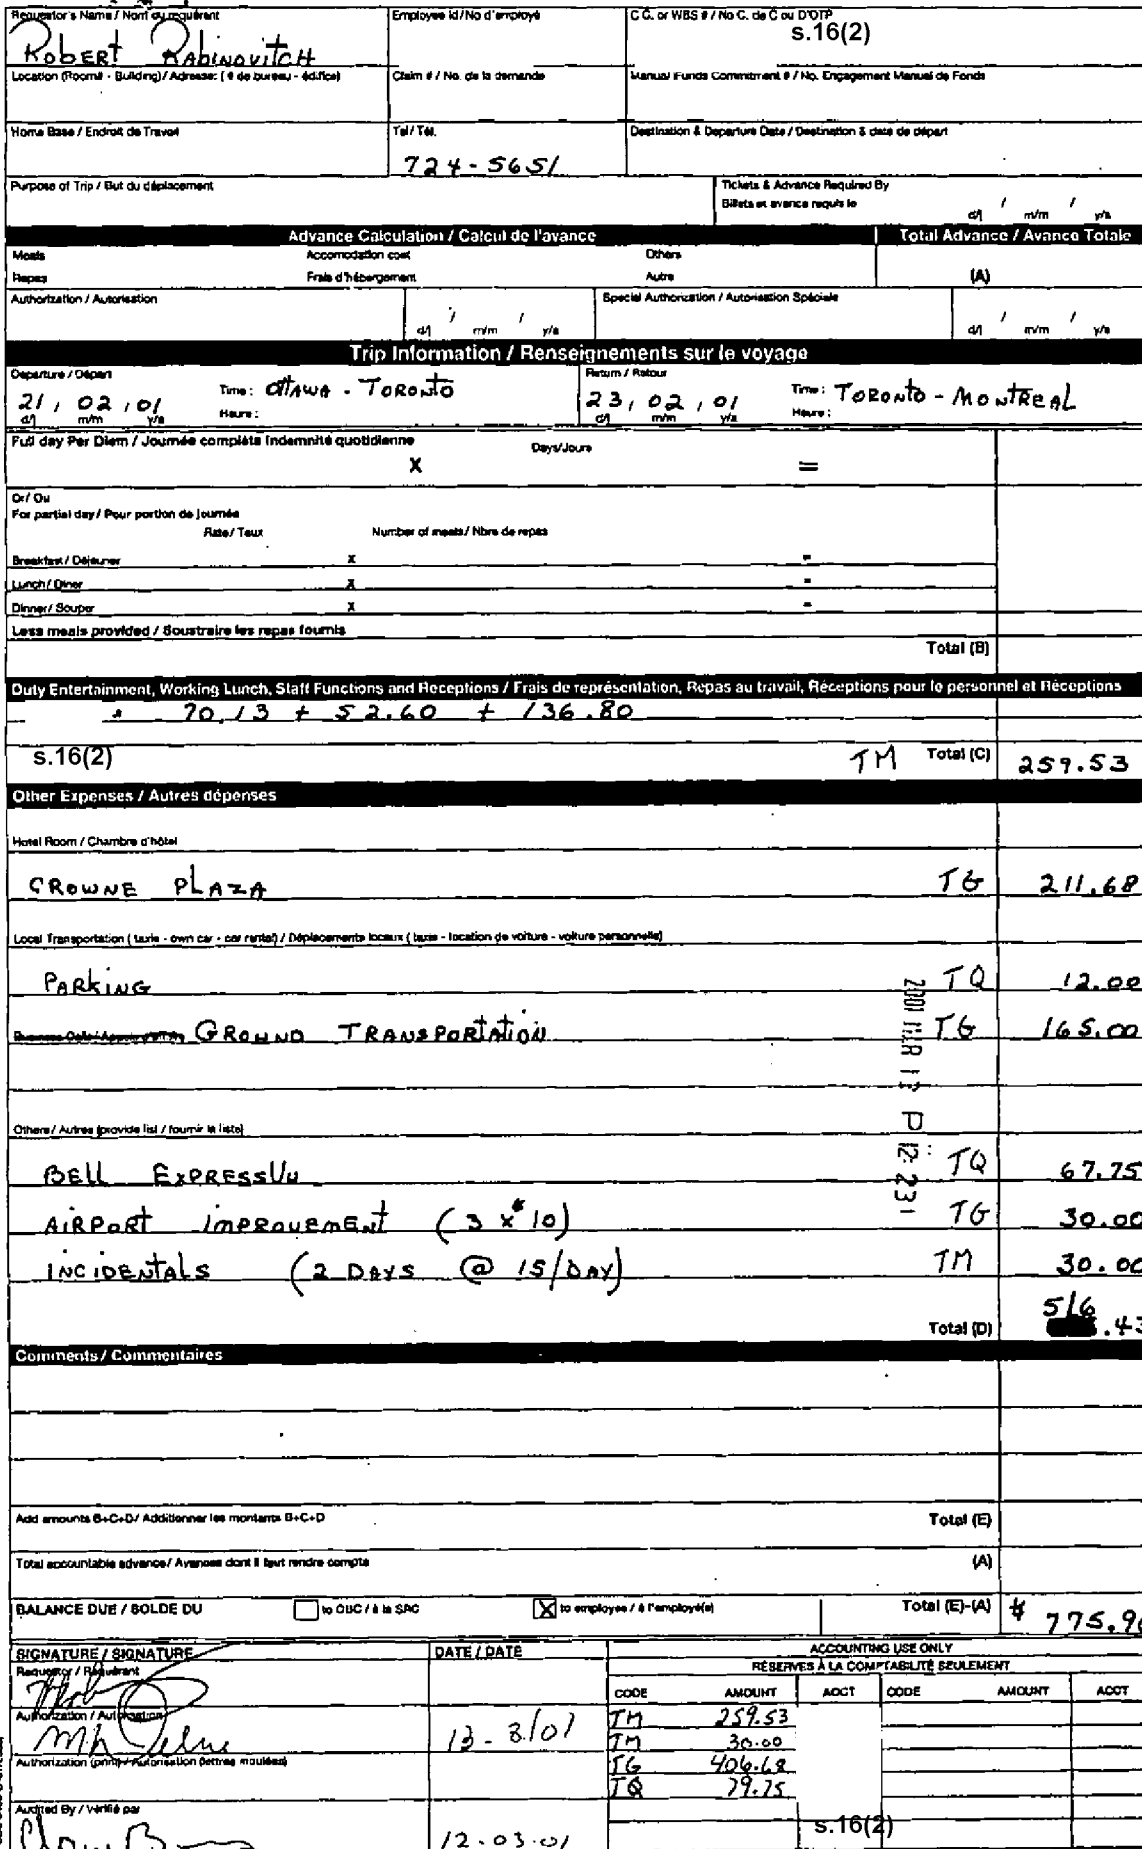 Requestor's Name / Nom du requérant
Employee Id/No d'employé
C.C. or WBS # / No C. de C ou D'OTP
s.16(2)
ROBERT RABINOVITCH
Location (Room# - Building) / Adresse: ( # de bureau - édifice)
Claim # / No. de la demande
Manual Funds Commitment # / No. Engagement Manuel de Fonds
Home Base / Endroit de Travail
Tel / Tél.
Destination & Departure Date / Destination & date de départ
724-5651
Purpose of Trip / But du déplacement
Tickets & Advance Required By
Billets et avance requis le
/ /
d/j m/m y/a
Advance Calculation / Calcul de l'avance
Total Advance / Avance Totale
Meals Accomodation cost Others
Repas Frais d'hébergement Autre (A)
Authorization / Autorisation
Special Authorization / Autorisation Spéciale
/ / / /
d/j m/m y/a d/j m/m y/a
Trip Information / Renseignements sur le voyage
Departure / Départ
Return / Retour
Time: OTTAWA - TORONTO
Time: TORONTO - MONTREAL
21, 02, 01
23, 02, 01
d/j m/m y/a Heure:
d/j m/m y/a Heure:
Full day Per Diem / Journée complète Indemnité quotidienne
Days/Jours
X =
Or/ Ou
For partial day / Pour portion de journée
Rate / Taux Number of meals / Nbre de repas
Breakfast / Déjeuner x =
Lunch / Diner x =
Dinner / Souper x =
Less meals provided / Soustraire les repas fournis
Total (B)
Duty Entertainment, Working Lunch, Staff Functions and Receptions / Frais de représentation, Repas au travail, Réceptions pour le personnel et Réceptions
70.13 + 52.60 + 136.80
s.16(2)
TM Total (C) 259.53
Other Expenses / Autres dépenses
Hotel Room / Chambre d'hôtel
CROWNE PLAZA TG 211.68
Local Transportation ( taxis - own car - car rental) / Déplacements locaux ( taxis - location de voiture - voiture personnelle)
PARKING TQ 12.00
GROUND TRANSPORTATION TG 165.00
2001 MAR 13 P 12: 23
Others / Autres (provide list / fournir la liste)
BELL EXPRESSVU TQ 67.75
AIRPORT IMPROVEMENT (3 x $10) TG 30.00
INCIDENTALS (2 DAYS @ 15/DAY) TM 30.00
Total (D) 516.43
Comments / Commentaires
Add amounts B+C+D/ Additionner les montants B+C+D
Total (E)
Total accountable advance / Avances dont il faut rendre compte
(A)
BALANCE DUE / SOLDE DU
to CBC / à la SRC
X to employee / à l'employé(e)
Total (E)-(A) $ 775.96
SIGNATURE / SIGNATURE
DATE / DATE
ACCOUNTING USE ONLY
RÉSERVES À LA COMPTABILITÉ SEULEMENT
Requestor / Requérant
CODE AMOUNT ACCT CODE AMOUNT ACCT
Authorization / Autorisation
TM 259.53
13-3/01
TM 30.00
Authorization (print) / Autorisation (lettres moulées)
TG 406.68
TQ 79.75
Audited By / Vérifié par
s.16(2)
12.03.01